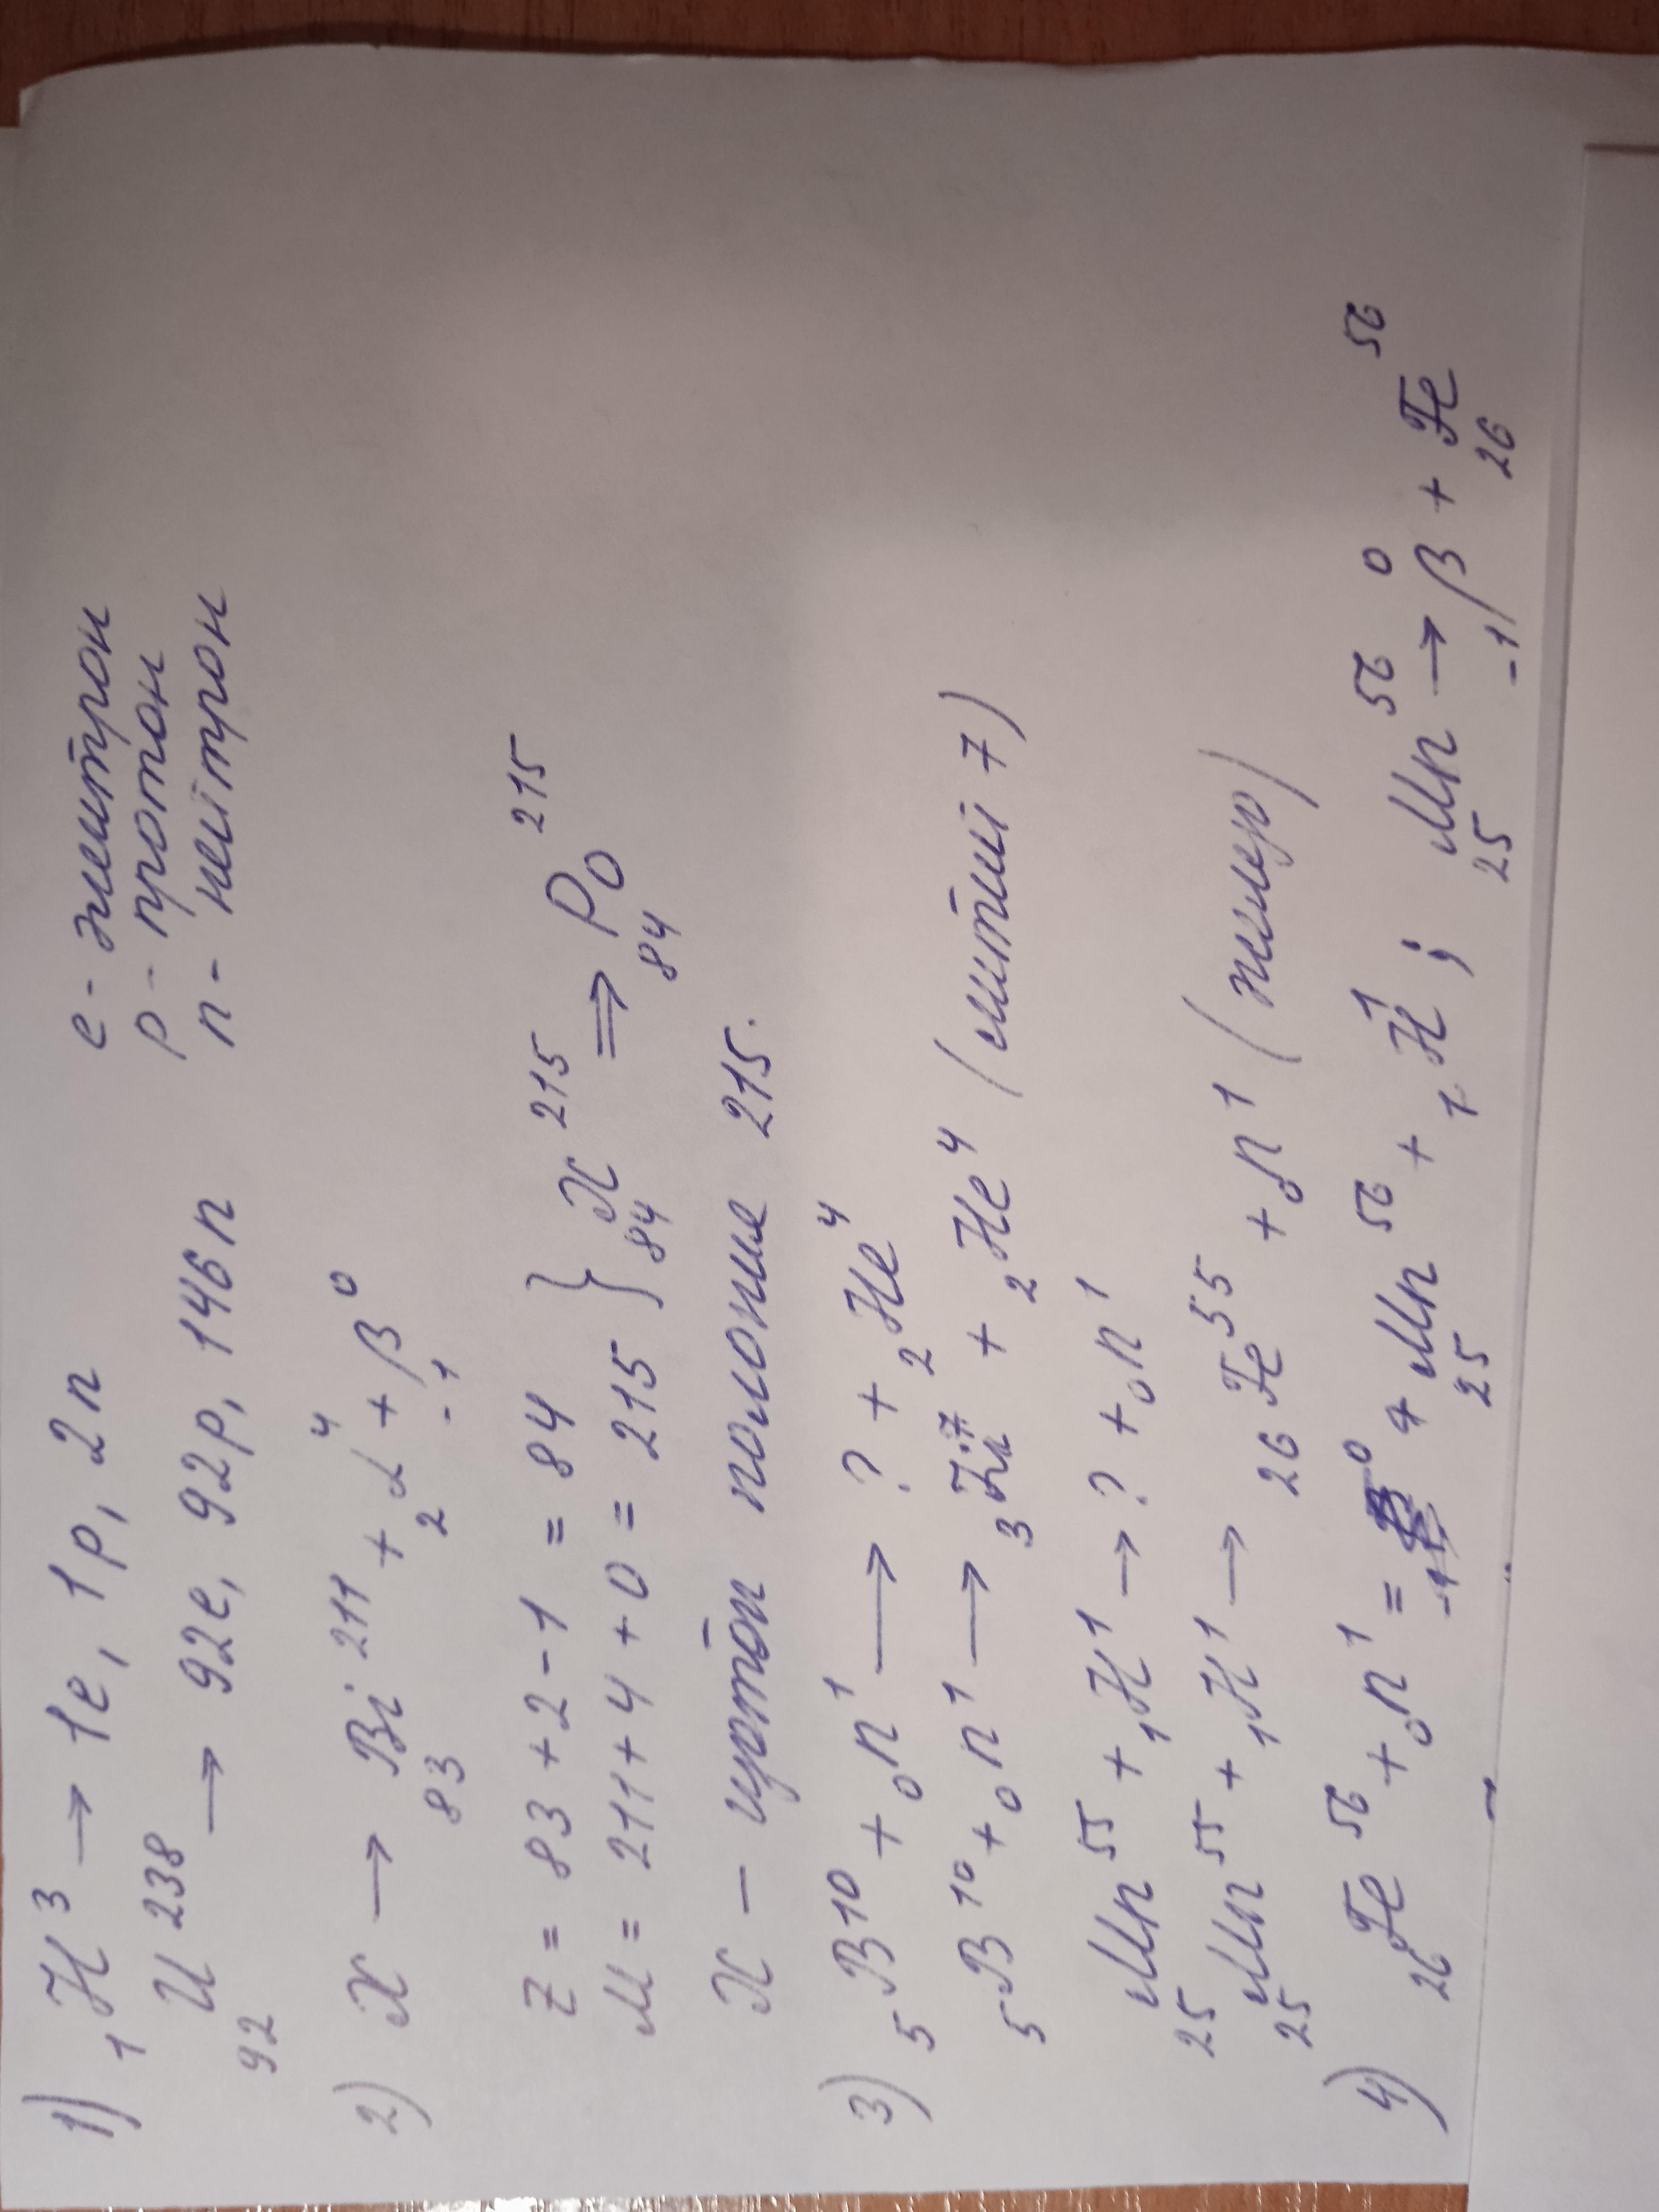 1) ₁H³ → 1e, 1p, 2n e - электрон
p - протон
₉₂U²³⁸ → 92e, 92p, 146n n - нейтрон
2) X → ₈₃Bi²¹¹ + ₂α⁴ + ₋₁β⁰
Z = 83 + 2 - 1 = 84
M = 211 + 4 + 0 = 215 } ₈₄X²¹⁵ ⇒ ₈₄Po²¹⁵
X – изотоп полония 215.
3) ₅B¹⁰ + ₀n¹ → ? + ₂He⁴
₅B¹⁰ + ₀n¹ → ₃Li⁷ + ₂He⁴ (литий 7)
₂₅Mn⁵⁵ + ₁H¹ → ? + ₀n¹
₂₅Mn⁵⁵ + ₁H¹ → ₂₆Fe⁵⁵ + ₀n¹ (железо)
4) ₂₆Fe⁵⁶ + ₀n¹ = ₂₅Mn⁵⁶ + ₁H¹ ; ₂₅Mn⁵⁶ → ₋₁β⁰ + ₂₆Fe⁵⁶